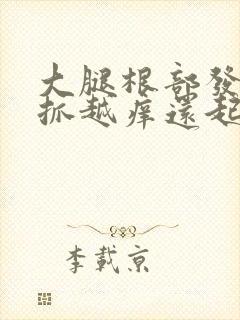 大腿根部發
抓越痒還起
李載京